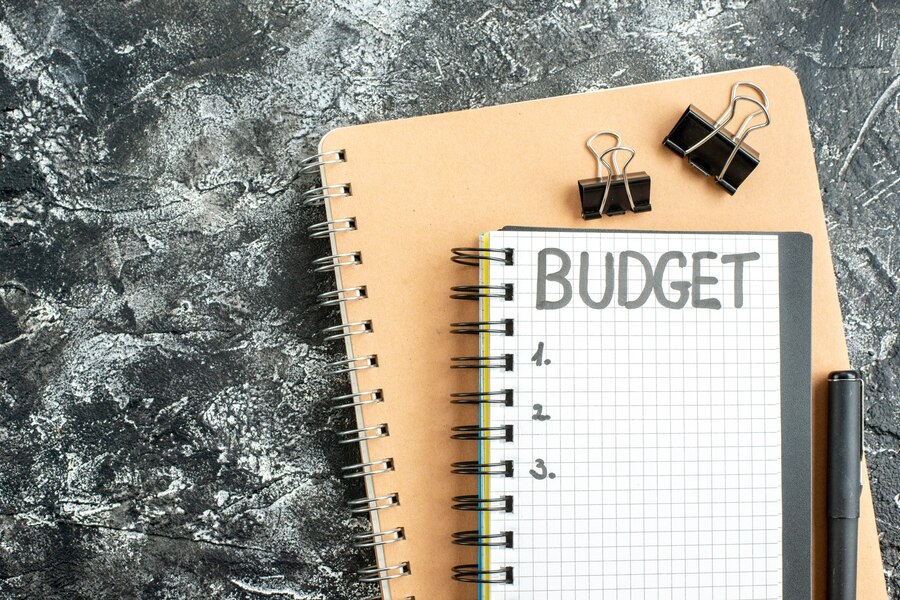 BUDGET
1.
2.
3.